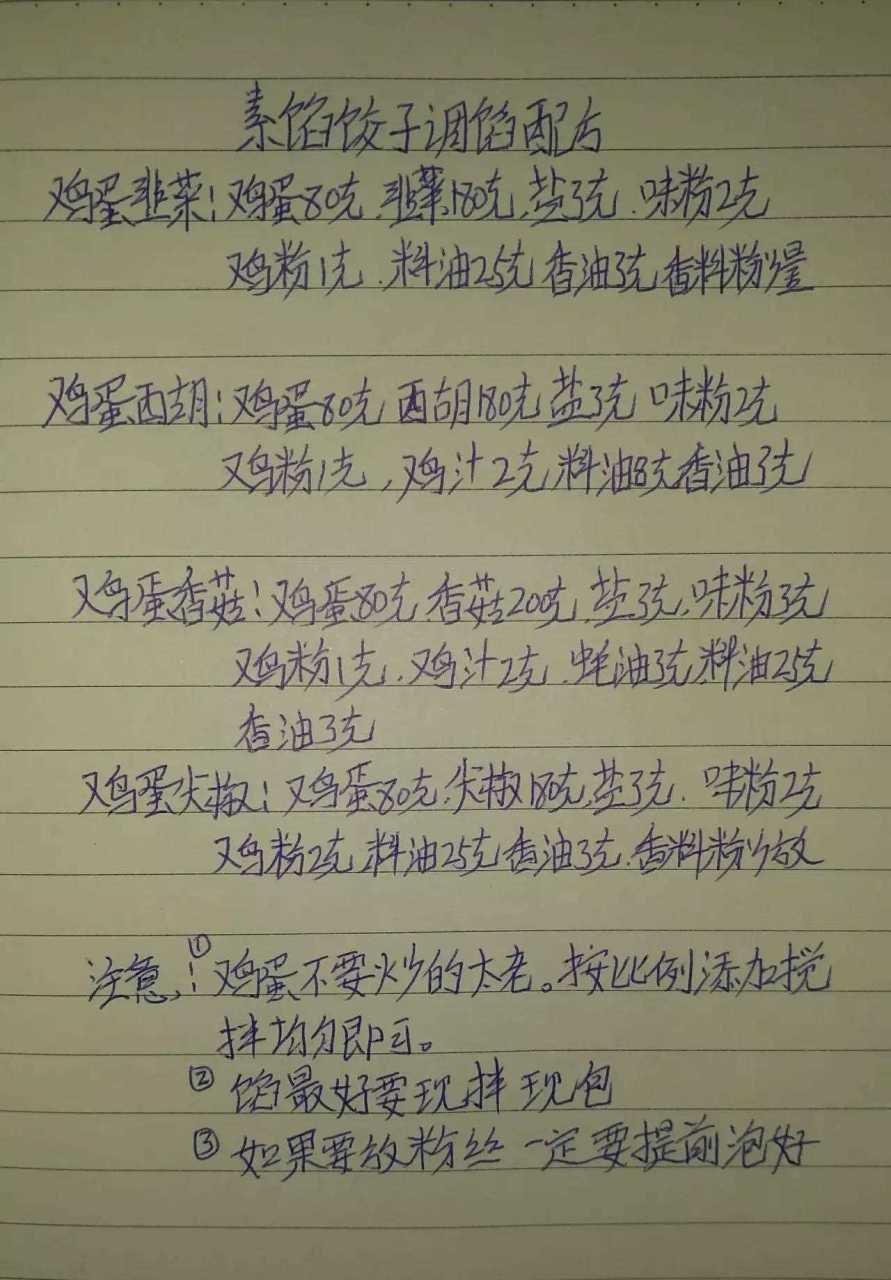 素馅饺子调馅配方
鸡蛋韭菜:鸡蛋80克.韭菜180克.盐3克.味粉2克
鸡粉1克.料油25克香油3克香料粉少量
鸡蛋西胡:鸡蛋80克西胡180克盐3克味粉2克
鸡粉1克,鸡汁2克料油8克香油3克
鸡蛋香菇:鸡蛋80克.香菇200克.盐3克.味粉3克
鸡粉1克.鸡汁2克.蚝油3克料油25克
香油3克
鸡蛋尖椒:鸡蛋80克.尖椒180克.盐3克.味粉2克
鸡粉2克料油25克香油3克.香料粉少放
注意:①鸡蛋不要炒的太老。按比例添加搅
拌均匀即可。
②馅最好要现拌现包
③如果要放粉丝一定要提前泡好